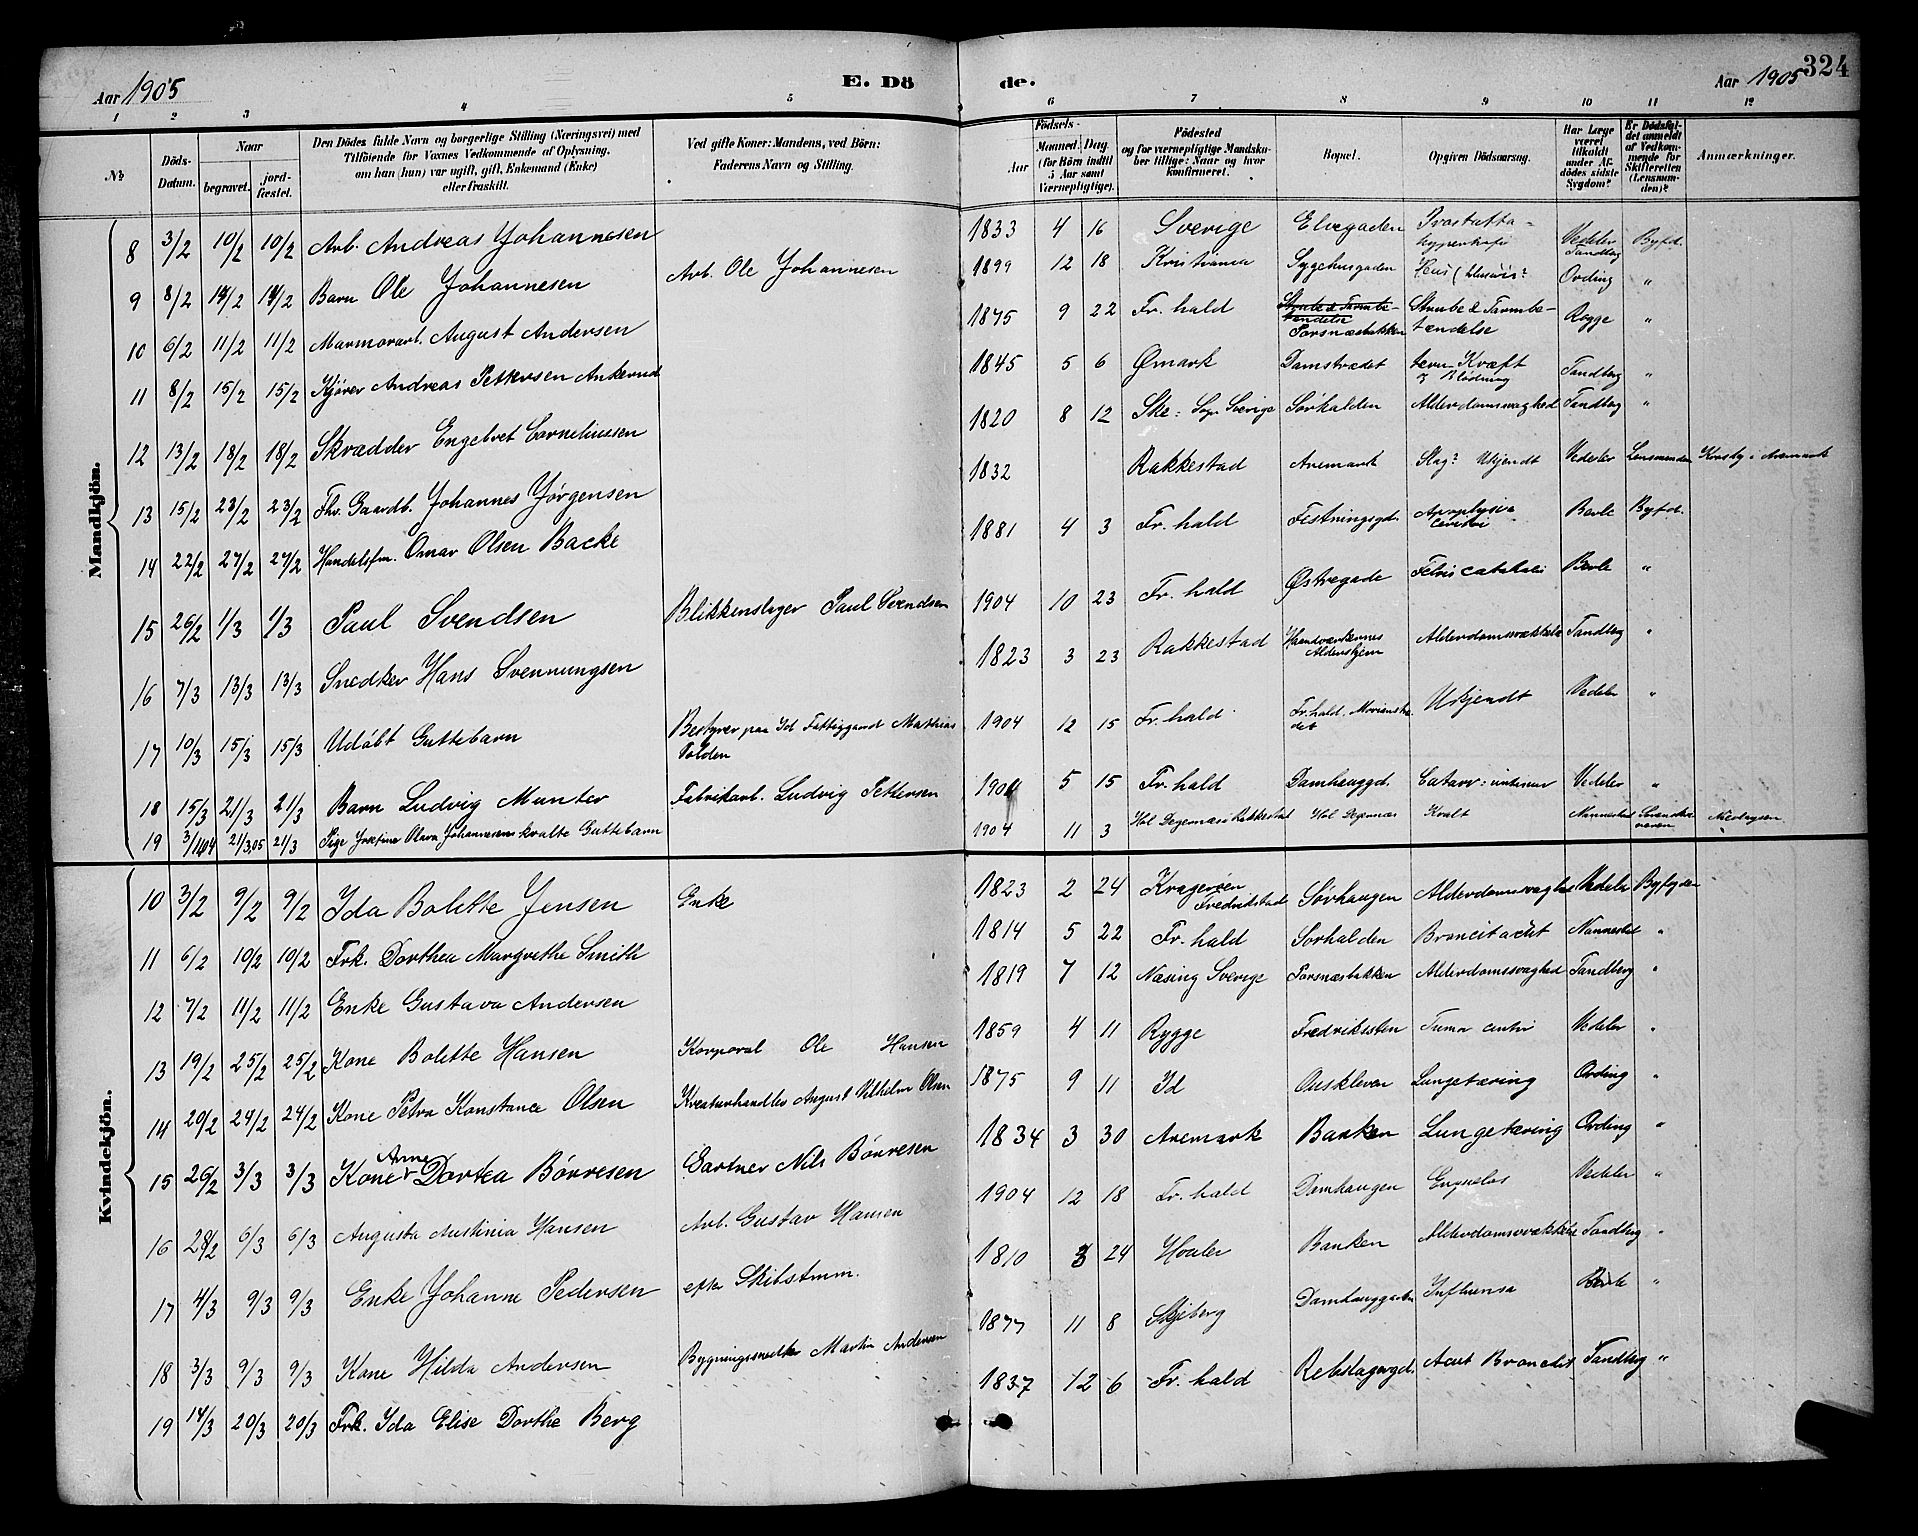 324
Aar 1905 E. Dö de. Aar 1905
1 2 3 4 5 6 7 8 9 10 11 12
№ Döds-Datum. Naar begravet. jord-fæstet. Den Dödes fulde Navn og borgerlige Stilling (Næringsvei) med Tilföiende for Voxnes Vedkommende af Oplysning, om han (hun) var ugift, gift, Enkemand (Enke) eller fraskilt. Ved gifte Koner: Mandens, ved Börn: Faderens Navn og Stilling. Födsels- Aar Maaned. Dag. (for Börn indtil 5 Aar samt Værnepligtige). Födested og for værnepligtige Mandskaber tillige: Naar og hvor konfirmeret. Bopæl. Opgiven Dödsaarsag. Har Læge været tilkaldt under Afdödes sidste Sygdom? Er Dödsfaldet anmeldt af Vedkommende for Skifteretten (Lensmanden)? Anmærkninger.
Mandkjön.
8 3/2 10/2 10/2 Arb. Andreas Johannesen 1833 4 16 Sverige Elvegaden Prostatta-hypertrofi Vedeler Tandberg Byfd.
9 8/2 14/2 14/2 Barn Ole Johannesen Arb. Ole Johannesen 1899 12 18 Kristiania Sygehusgaden Ording "
10 6/2 11/2 11/2 Marmorarb. August Andersen 1875 9 22 Fr.hald Porsnæsbakken Strube & Tarmbetændelse Rygge "
11 8/2 15/2 15/2 Kjörer Andreas Pettersen Ankerud 1845 5 6 Ømark Damstrædet Kræft & Blödning Tandberg "
12 13/2 18/2 18/2 Skrædder Engebret Corneliussen 1820 8 12 Ske: Sogn Sverige Sörhalden Alderdomssvaghed Tandberg "
13 15/2 23/2 23/2 Fhv. Gaardb. Johannes Jörgensen 1832 Rakkestad Aremark Slag? Ukjendt Vedeler Lensmanden Kirkeby i Aremark
14 22/2 27/2 27/2 Handelsfm. Omar Olsen Backe 1881 4 3 Fr.hald Festningsgd. Bevle Byfd.
15 26/2 1/3 1/3 Paul Svendsen Blikkenslager Paul Svendsen 1904 10 23 Fr.hald Østregade Febris catarhalis Bevle "
16 7/3 13/3 13/3 Snedker Hans Svennungsen 1823 3 23 Rakkestad Haandværkernes Aldershjem Alderdomssvækkelse Tandberg "
17 10/3 15/3 15/3 Udöbt Guttebarn Bestyrer paa Id Fattiggaard Mathias Volden 1904 12 15 Fr.hald Fr.hald. Ukjendt Vedeler "
18 15/3 21/3 21/3 Barn Ludvig Munter Fabrikarb. Ludvig Pettersen 1904 5 15 Fr.hald Damhauggd. Catarr: intestinar Vedeler "
19 3/11 04 21/3.05 21/3 Pige Josefine Olava Johannesens kvalte Guttebarn 1904 11 3 Hol Degernæs Rakkestad Hol Degernæs Kvalt Nannestad Nicolaysen
Kvindekjön.
10 3/2 9/2 9/2 Ida Bolette Jensen Enke 1823 2 24 Kragerøen Fredrikstad Sörhaugen Alderdomssvaghed Vedeler Byfogden
11 6/2 10/2 10/2 Frk. Dorthea Margrethe Smith 1814 5 22 Fr.hald Sorhalden Broncit acut Nannestad "
12 7/2 11/2 11/2 Enke Gustava Andersen 1819 7 12 Næsing Sverige Porsnæsbakken Alderdomssvaghed Tandberg "
13 19/2 25/2 25/2 Kone Bolette Hansen Korporal Ole Hansen 1859 4 11 Rygge Fredriksten Vedeler "
14 20/2 24/2 24/2 Kone Petra Konstance Olsen Kreaturhandler August Vilhelm Olsen 1875 9 11 Id Ouskleven Lungetæring Ording "
15 26/2 3/3 3/3 Kone Anne Dortea Börresen Gartner Nils Börresen 1834 3 30 Aremark Banken Lungetæring Ording "
16 28/2 6/3 6/3 Augusta Austinia Hansen Arb. Gustav Hansen 1904 12 18 Fr.hald Damhaugen Vedeler "
17 4/3 9/3 9/3 Enke Johanne Pedersen efter Skibstmm. 1810 3 24 Hvaler Banken Alderdomssvækkelse Tandberg "
18 3/3 9/3 9/3 Kone Hilda Andersen Bygningssnedker Martin Andersen 1877 11 8 Skjeberg Damhauggaden Influensa Bevle "
19 14/3 20/3 20/3 Frk. Ida Elise Dorthe Berg 1837 12 6 Fr.hald Rebslagergd. Acut Bronchit Tandberg "